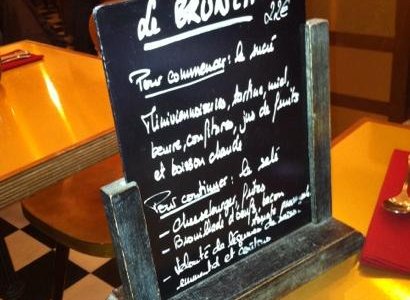 Le BRUNCH
22€
Pour commencer : le sucré
Miniviennoiseries, tartine, miel,
beurre, confitures, jus de fruits
et boisson chaude
Pour continuer : le salé
- Cheeseburger, frites
- Brouillade d'oeufs, bacon
- Velouté de légumes de saison,
emmental et croûtons